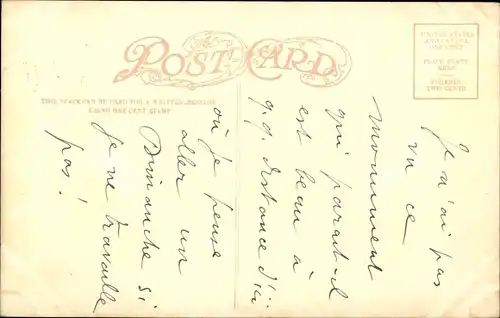 POST CARD
THIS SPACE CAN BE USED FOR A WRITTEN MESSAGE
USING ONE CENT STAMP
UNITED STATES
ONE CENT
PLACE STAMP
HERE
FOREIGN
TWO CENTS
Je n'ai pas
vu ce
monument
qui parait-il
est beau à
q.q. distance d'ici
où je pense
aller un
Dimanche si
je ne travaille
pas!